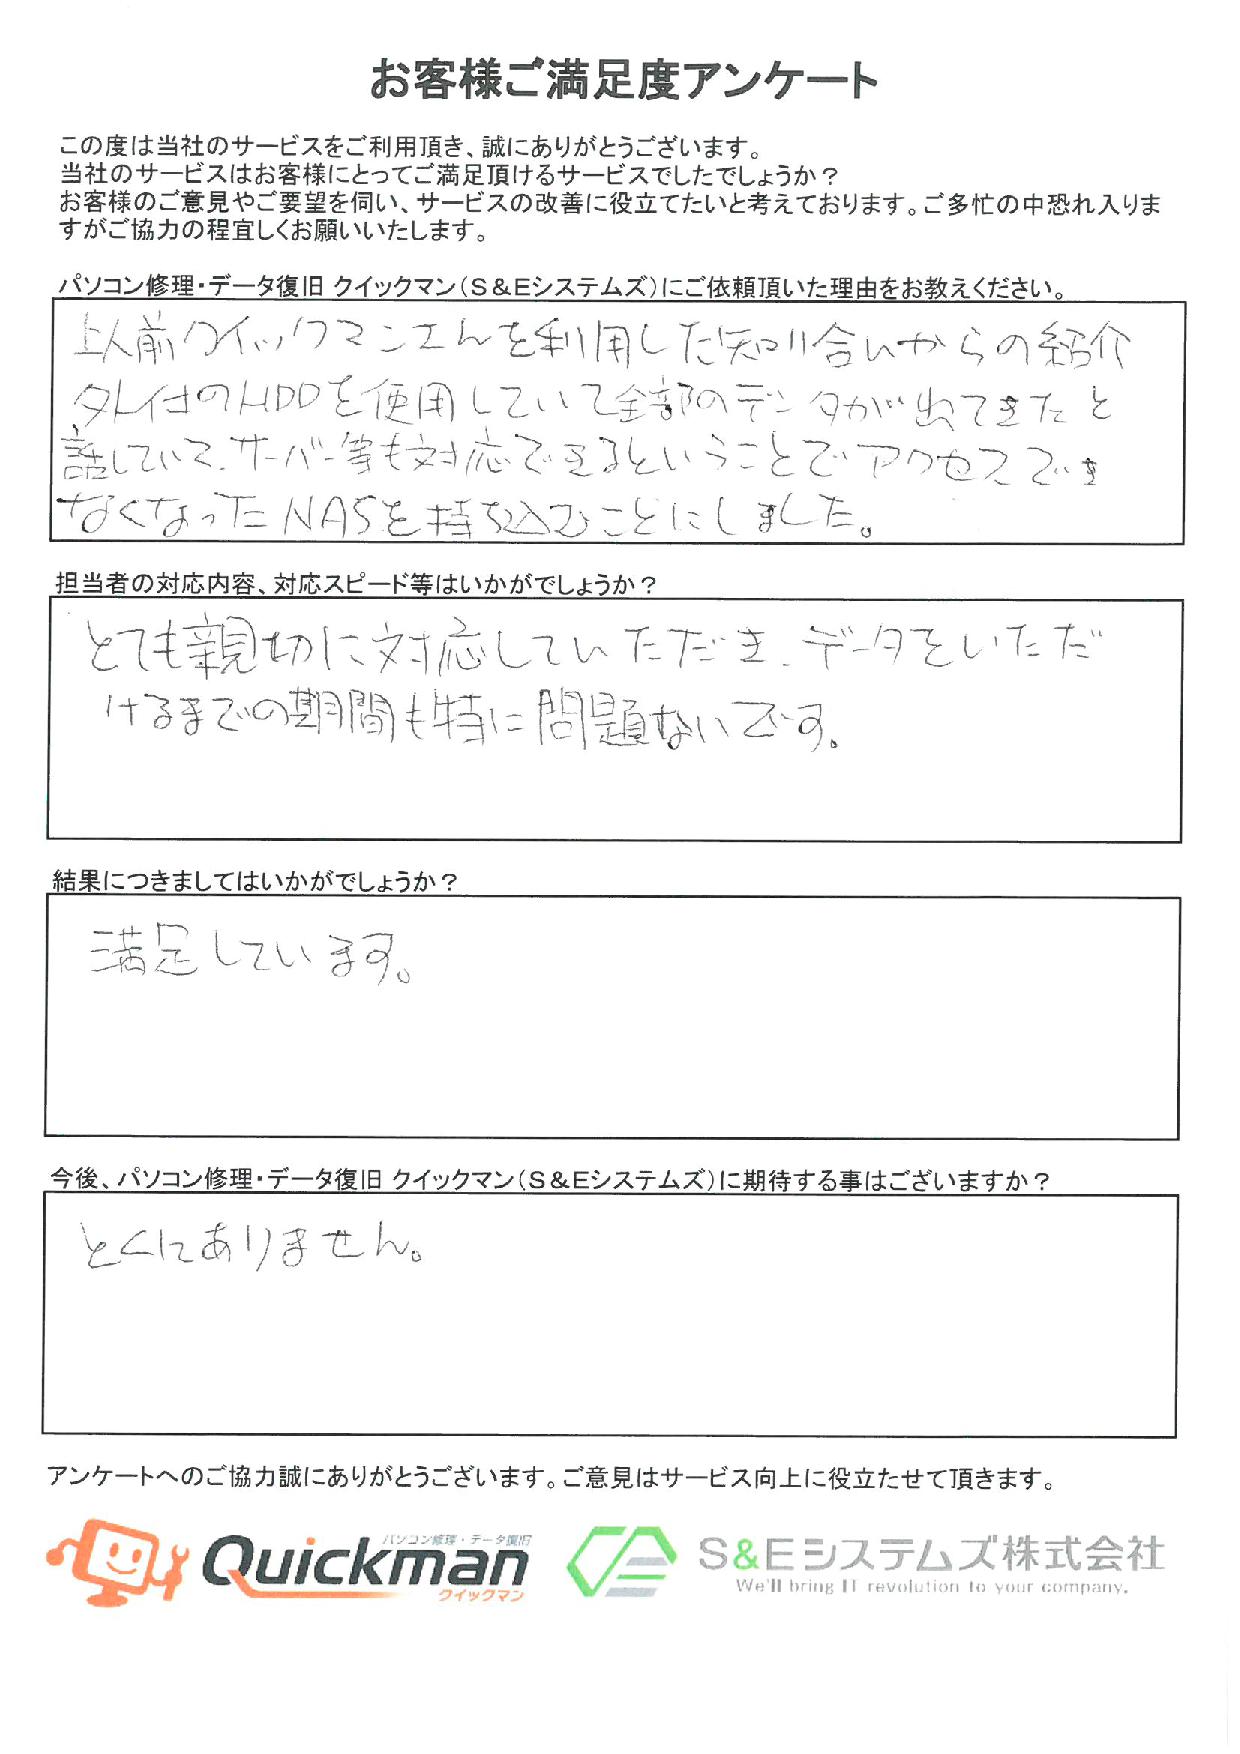 お客様ご満足度アンケート
この度は当社のサービスをご利用頂き、誠にありがとうございます。
当社のサービスはお客様にとってご満足頂けるサービスでしたでしょうか？
お客様のご意見やご要望を伺い、サービスの改善に役立てたいと考えております。ご多忙の中恐れ入りま
すがご協力の程宜しくお願いいたします。
パソコン修理・データ復旧 クイックマン（S＆Eシステムズ）にご依頼頂いた理由をお教えください。
以前クイックマンさんを利用した知り合いからの紹介
外付のHDDを使用していて全部のデータが出てきたと
話していて、サーバー等も対応できるということでアクセスでき
なくなったNASを持ち込むことにしました。
担当者の対応内容、対応スピード等はいかがでしょうか？
とても親切に対応していただき、データをいただ
けるまでの期間も特に問題ないです。
結果につきましてはいかがでしょうか？
満足しています。
今後、パソコン修理・データ復旧 クイックマン（S＆Eシステムズ）に期待する事はございますか？
とくにありません。
アンケートへのご協力誠にありがとうございます。ご意見はサービス向上に役立たせて頂きます。
パソコン修理・データ復旧
Quickman
クイックマン
S&Eシステムズ株式会社
We'll bring IT revolution to your company.